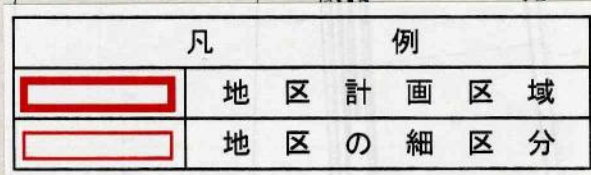 凡例
地区計画区域
地区の細区分